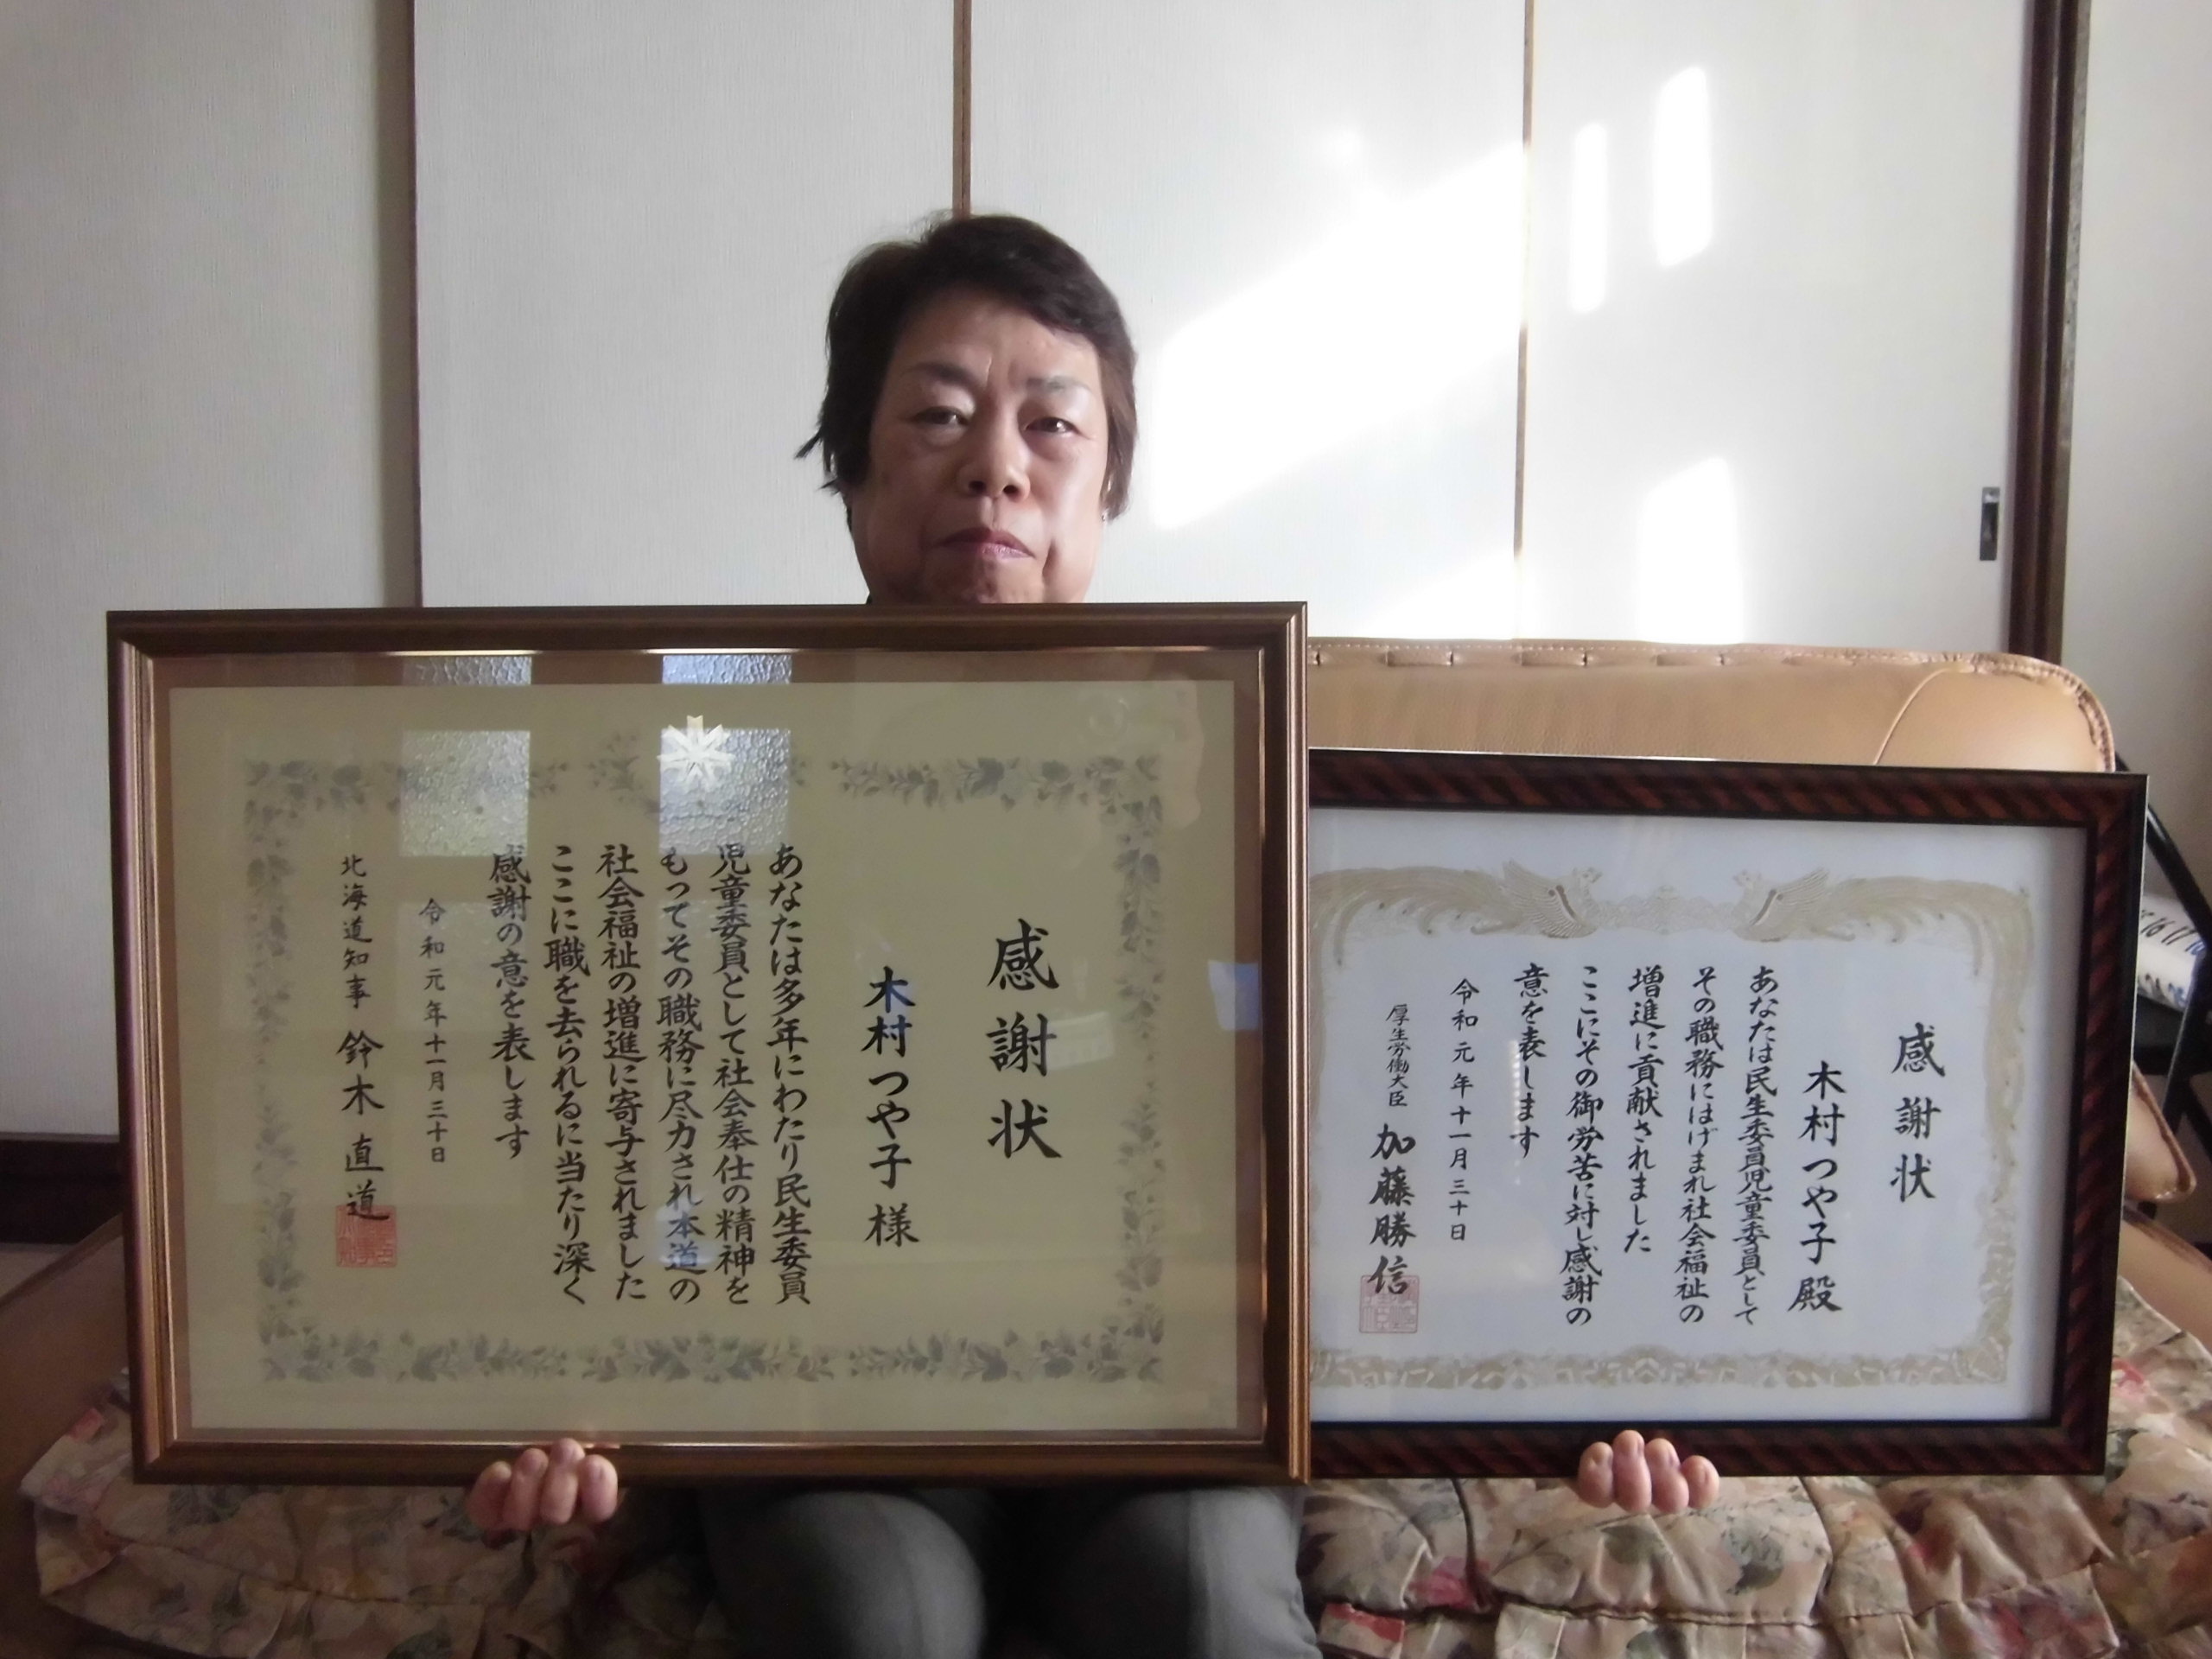 感謝状
木村つや子様
あなたは多年にわたり民生委員
児童委員として社会奉仕の精神を
もってその職務に尽力され本道の
社会福祉の増進に寄与されました
ここに職を去られるに当たり深く
感謝の意を表します
令和元年十一月三十日
北海道知事 鈴木直道
感謝状
木村つや子殿
あなたは民生委員児童委員として
その職務にはげまれ社会福祉の
増進に貢献されました
ここにその御労苦に対し感謝の
意を表します
令和元年十一月三十日
厚生労働大臣 加藤勝信